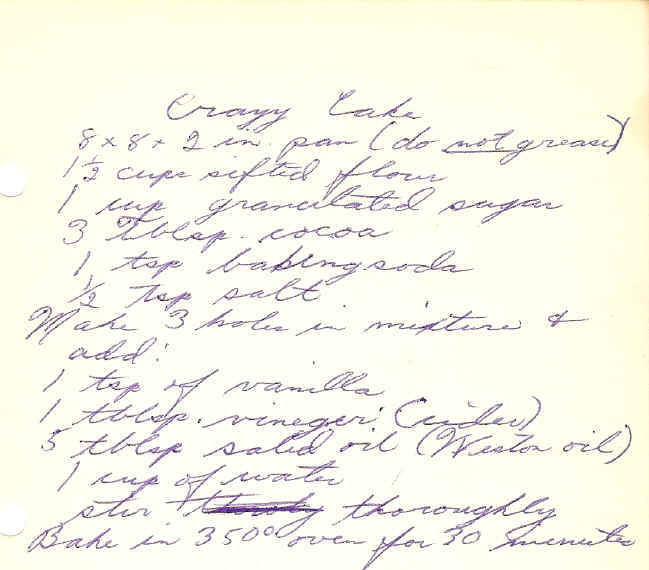 Crazy Cake
8 x 8 x 2 in. pan (do not grease)
1 1/2 cups sifted flour
1 cup granulated sugar
3 tblsp. cocoa
1 tsp baking soda
1/2 tsp salt
Make 3 holes in mixture &
add:
1 tsp of vanilla
1 tblsp. vineger (cider)
5 tblsp salad oil (Weston oil)
1 cup of water
stir thoroughly
Bake in 350° oven for 30 minutes